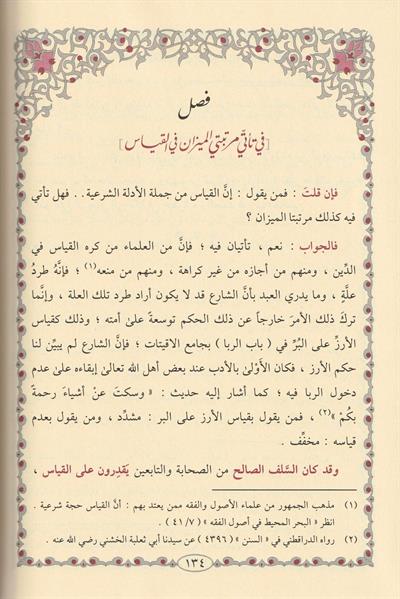 فصل
[في تأتّي مرتبتي الميزان في القياس]
فإن قلتَ : فمن يقول : إنَّ القياس من جملة الأدلة الشرعية . . فهل تأتي
فيه كذلك مرتبتا الميزان ؟
فالجواب : نعم ، تأتيان فيه ؛ فإنَّ من العلماء من كره القياس في
الدِّين ، ومنهم من أجازه من غير كراهة ، ومنهم من منعه(١) ؛ فإنَّهُ طردُ
علَّةٍ ، وما يدري العبد بأنَّ الشارع قد لا يكون أراد طرد تلك العلة ، وإنَّما
ترك ذلك الأمرَ خارجاً عن ذلك الحكم توسعةً على أمته ؛ وذلك كقياس
الأرزِّ على البُرِّ في ( باب الربا ) بجامع الاقتيات ؛ فإنَّ الشارع لم يبيِّن لنا
حكم الأرز ، فكان الأَوْلىٰ بالأدب عند بعض أهل الله تعالىٰ إبقاءه علىٰ عدم
دخول الربا فيه ؛ كما أشار إليه حديث : « وسكتَ عنْ أشياءَ رحمةً
بكُمْ »(٢) ، فمن يقول بقياس الأرز على البر : مشدِّد ، ومن يقول بعدم
قياسه : مخفِّف .
وقد كان السَّلف الصالح من الصحابة والتابعين يَقدِرون على القياس ،
(١) مذهب الجمهور من علماء الأصول والفقه ممن يعتد بهم : أنَّ القياس حجة شرعية .
انظر « البحر المحيط في أصول الفقه » ( ٤١/٧ ) .
(٢) رواه الدراقطني في « السنن » ( ٤٣٩٦ ) عن سيدنا أبي ثعلبة الخشني رضي الله عنه .
١٣٤